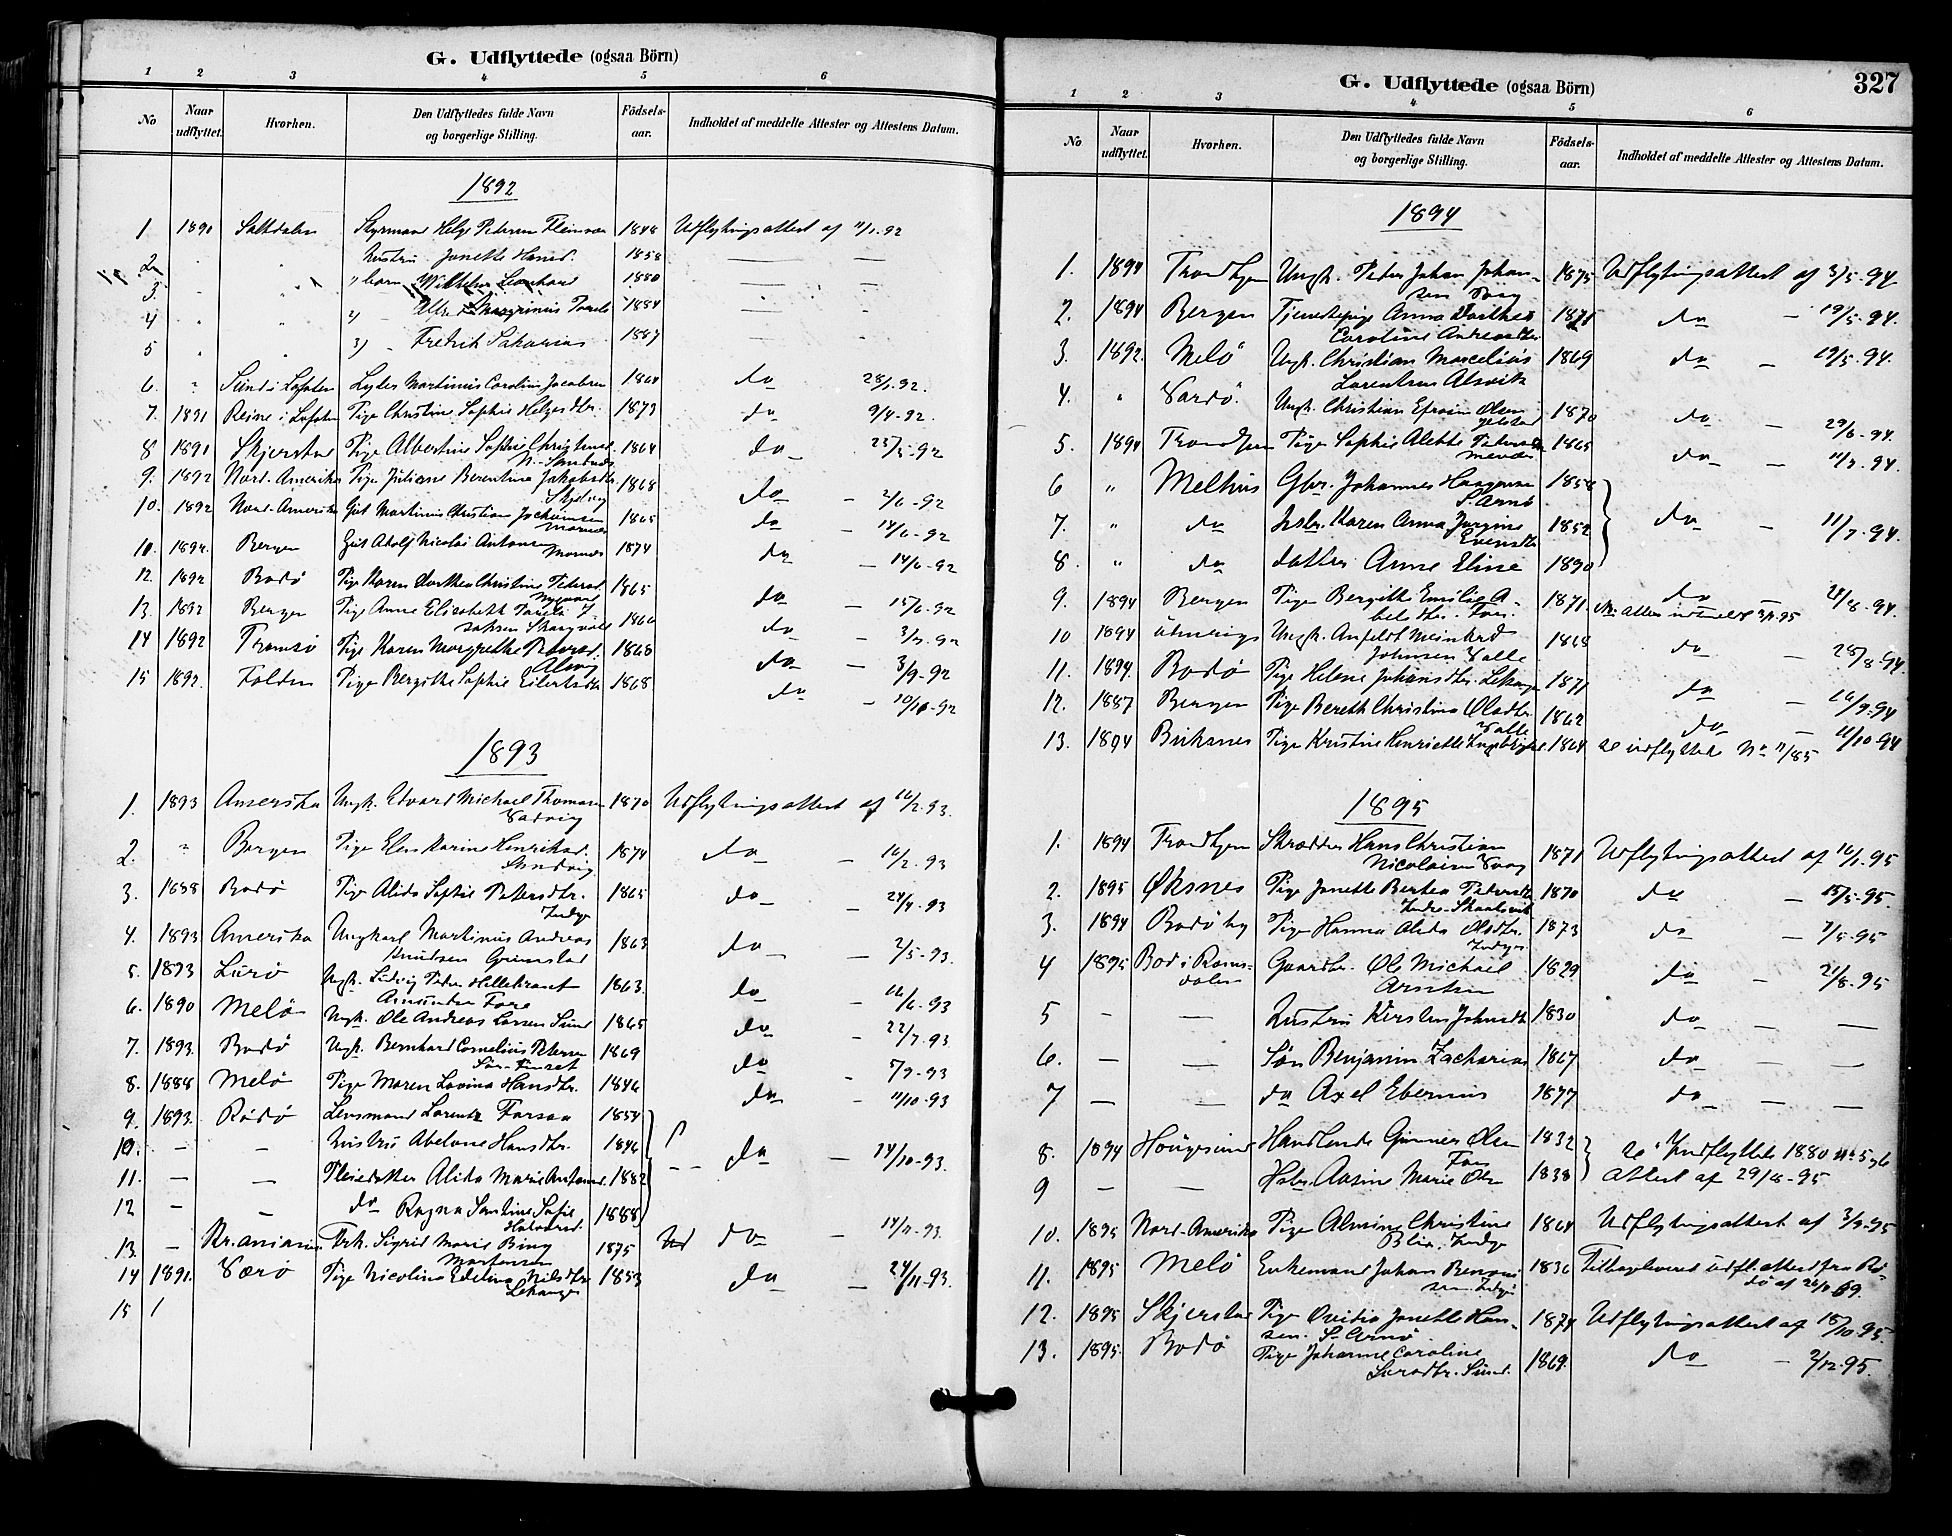 G. Udflyttede (ogsaa Börn)
1 2 3 4 5 6
No Naar udflyttet. Hvorhen. Den Udflyttedes fulde Navn og borgerlige Stilling. Födsels-aar. Indholdet af meddelte Attester og Attestens Datum.
1892
1 1890 Saltdalen Styrmand Helge Petersen 1848 Udflytningsattest af 11/1.92
2 " " Hustru Janette Hansd. 1858 — —
3 " " " barn Wilhelm Leonhard 1880 — —
4 " " 2) 1884 — —
5 " " 3) – Fredrik Sakarias 1887 — —
6. " Sund i Lofoten Martinus Carolius Jacobsen 1864 do 28/1.92.
7. 1891 Reine i Lofoten Pige Christine Sophie Helgesdtr. 1873 do 9/4-92.
8 1891 Skjerstad Pige Albertine Sofie 1864 do 25/5-92
9. 1892 Nord-Amerika Pige Juliane Berentine Jakobsdtr. 1868 do – 2/6-92
10. 1892 Nord-Amerika Gut Martinus Christian Jochumsen 1865 do – 14/6-92
11. 1892. Bergen Gut Adolf Nicolai Antonsen 1874 do – 14/6-92
12 1892 Bodø Pige Karen Dorthea Christine Pedersd. 1865 do – 15/6-92
13. 1892 Bergen Pige Anne Elisabeth 1866 do – 3/7.92
14 1892 Tromsø Pige Karen Margrethe 1868 do – 3/9-92
15 1892. Folden Pige Bergithe Sophie Eilertsdtr 1868 do – 10/10-92
1893
1. 1893 Amerika Ungk. Edvard Michael Thomasen 1870 Udflytningsattest af 16/2.93.
2. " Bergen Pige Elen Karine Henriksd. 1874 do – 16/2.93
3. 1888 Bodø Pige Alida Sofie Petersdtr. Indyr 1865 do – 24/4-93
4. 1893 Amerika Ungkarl Martinus Andreas Knudsen Grimstad 1863 do – 2/5-93.
5. 1893 Lurø Ungk. Ludvig Peder Hillebrant Amundsen Fore 1863. do – 16/6-93
6. 1890 Melø Ungk. Ole Andreas Larsen Sund 1865 do – 22/7.93
7. 1893. Bodø Ungk. Bernhard Cornelius Petersen 1869 do – 5/9-93
8. 1888 Melø Pige Maren Lovina Hansdtr. 1846 do – 11/10-93
9. 1893. Rødø Lensmand Lorentz Forsaa 1854
10. — — Hustru Abelone Hansdtr. 1846 do – 14/10-93.
11. — — Pleiedatter Alida Marie Antonsd. 1882
12 — — do Ragna Santine Sofie 1888
13. — Kr.ania Frk. Sigrid Marie Bing Mortensen 1875 do – 14/11-93.
14 1891. Værø Pige Nicolina Edelina Nilsdtr. Lekanger 1853 do – 24/11-93.
15 1
G. Udflyttede (ogsaa Börn) 327
1 2 3 4 5 6
No Naar udflyttet. Hvorhen. Den Udflyttedes fulde Navn og borgerlige Stilling. Födsels-aar. Indholdet af meddelte Attester og Attestens Datum.
1894
1. 1894 Trondhjem Ungk. Peder Johan Johansen Vaag 1875 Udflytningsattest af 3/5-94
2. 1894 Bergen Tjenestepige Anna Dorthea Caroline Andreasdtr. 1871 do – 19/5-94.
3. 1892. Melø Ungk. Christian Marcelius Lorentsen Alsvik 1869 do – 19/5-94.
4. " Vardø. Ungk. Christian Efraim Olsen 1870 do – 29/6-94.
5. 1894 Trondhjem Pige Sophie Alette Pedersdtr 1865 do – 11/7-94.
6 " Melhus Gbr. Johannes Haagensen S. Arnø 1858
7. " do Karen Anna Jørgine 1852 do – 11/7-94.
8. " do datter Anne Eline 1890
9. 1894 Bergen Pige Bergitte Emilie Abelsdtr. Fore 1871 do 21/8-94.
10 1894 Ungk. Anfeldt Meinhard Johnsen Valle 1868 do – 28/8-94
11. 1894. Bodø Pige Helene Johansdtr. Lekang 1871 do – 16/9-94
12. 1887 Bergen Pige Bereth Christina Olsdtr. Valle 1862 do – 16/10-94
13. 1894 Buksnes Pige Kristine Henriette 1864 se indflyttede No 11/85
1895
1. 1894 Trondhjem Skrædder Hans Christian Nicolaisen Vaag 1871 Udflytningsattest af 16/1.95
2. 1895 Øksnes Pige Janette Bertea Pedersdtr 1870 do – 15/3-95.
3. 1894 Bodø by Pige Hanna Alida Olsdtr. Indyr 1873 do – 7/5-95
4 1895 Bod i Romsdalen Gaardbr. Ole Michael Arntsen 1829 do – 21/8-95
5 — — Hustru Kirsten Johnsdtr 1830 do — —
6. — — Søn Benjamin Zacharias 1867 do — —
7 — — do Axel Ebernius 1877 do — —
8. 1894 Hougesund Handlende Gunner Olsen Fore 1832 se Indflyttede 1880 No 5 & 6
9 — — Hstr. Aasine Marie Olsen 1838 Attest af 29/8-95
10. 1895 Nord-Amerika Pige Almine Christine Blix. Indyr 1864 Udflytningsattest af 3/9-95
11. 1895 Melø Enkemand Johan Benonisen. Indyr 1836 Tilbageleveret udfl.attest fra Rødø af
12. 1895 Skjerstad Pige Ovidia Janette Hansen. S. Arnø 1874 Udflytningsattest af 18/10-95.
13. 1895. Bodø Pige Johanne Caroline 1869. do – 2/12-95.